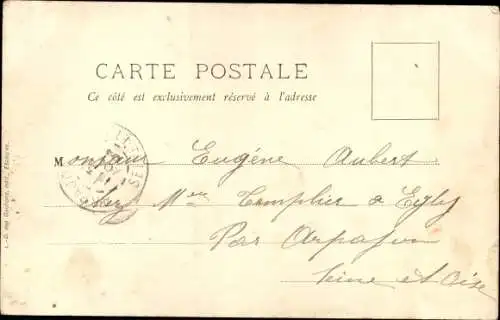 CARTE POSTALE
Ce côté est exclusivement réservé à l'adresse
Monsieur Eugène Aubert
chez Mer Templier à Egly
Par Arpajon
Seine et Oise